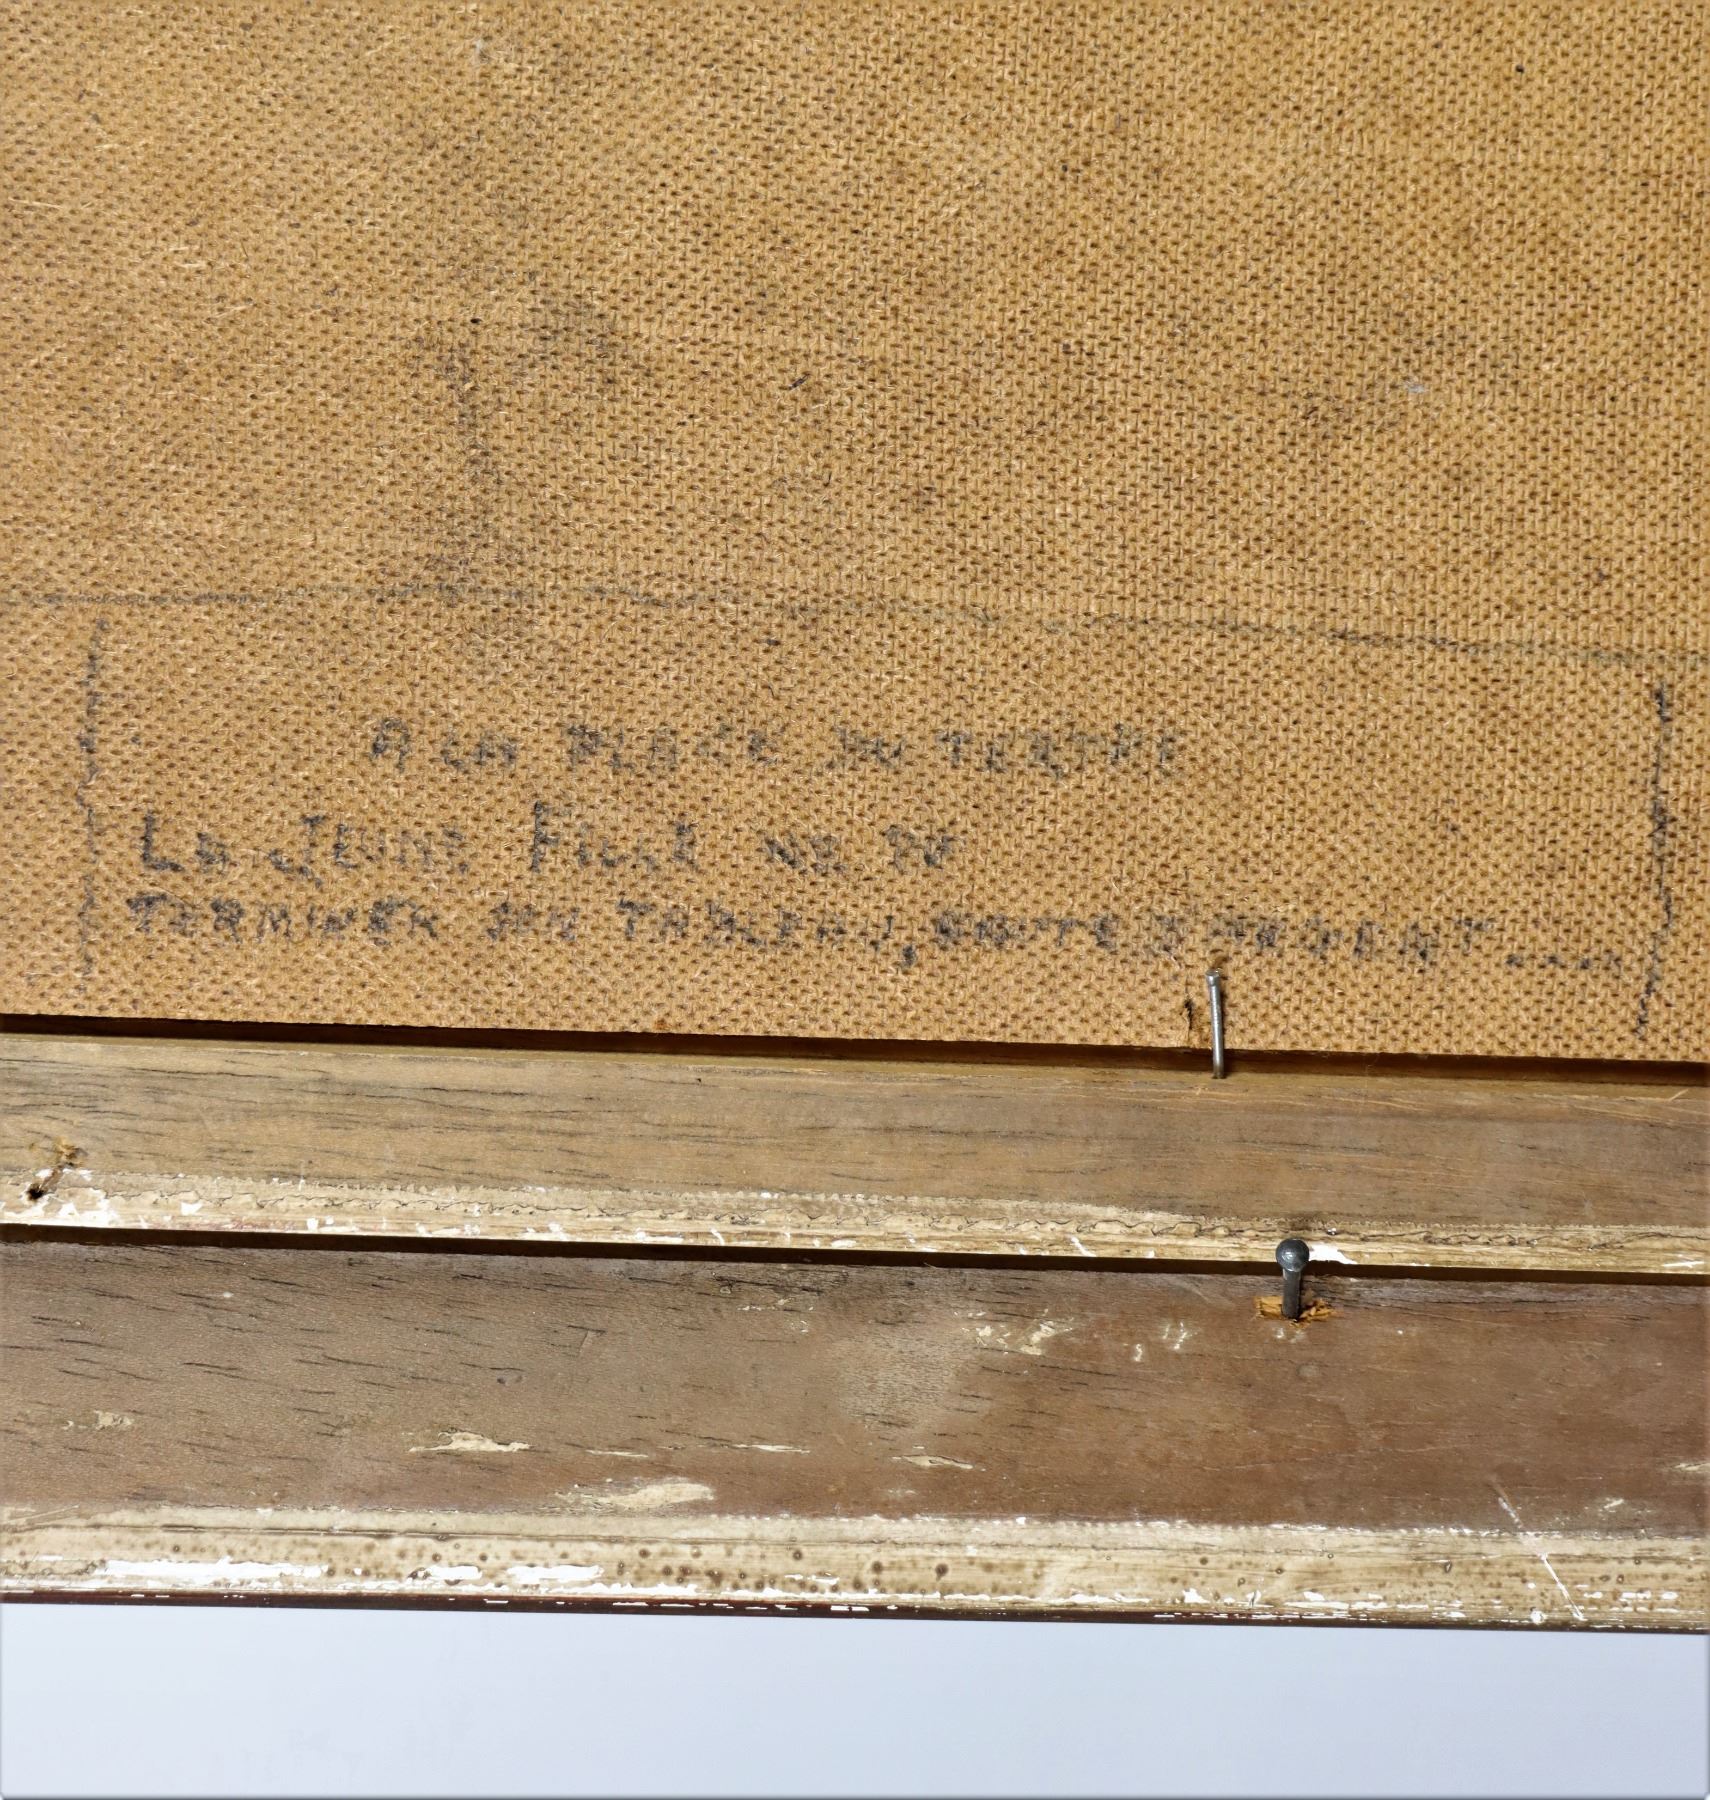 A LA PLACE DU TERTRE
LA JEUNE FILLE NE PU
TERMINER SON TABLEAU, FAUTE D'ARGENT .....